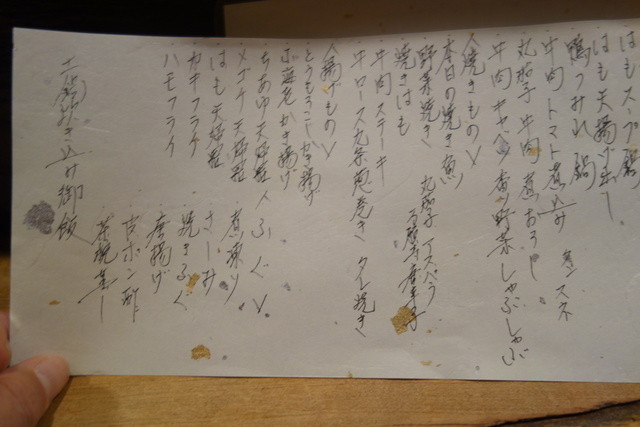 はもスープ鍋
はも天揚げ出し
鴨つみれ鍋
牛肉トマト煮込み 牛スネ
丸茄子牛肉煮おろし
牛肉キャベツ香り野菜しゃぶしゃぶ
〈焼きもの〉
本日の焼き魚
野菜焼き 丸茄子 アスパラ 万願寺唐辛子
焼きはも
牛肉ステーキ
牛ロース九条葱巻き タレ焼き
〈揚げもの〉
とうもろこしかき揚げ
小海老かき揚げ
ちあゆ天婦羅
メゴチ天婦羅
はも天婦羅
カキフライ
ハモフライ
〈ふぐ〉
煮凍り
さしみ
焼きふぐ
唐揚げ
白ポン酢
茶碗蒸し
土鍋炊き込み御飯